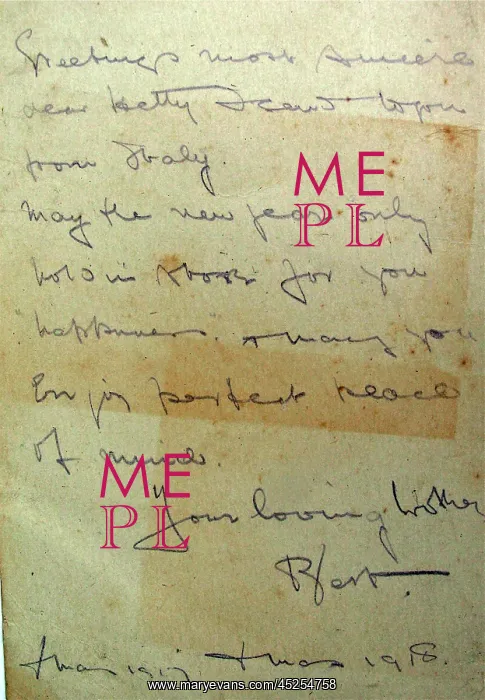 Greetings most sincere
dear Hetty I send to you
from Italy.
May the new year only
hold in store for you
happiness. & may you
Enjoy perfect peace
of mind.
Your loving brother
Bert.
Xmas 1917 Xmas 1918.
ME
PL
ME
PL
www.maryevans.com/45254758